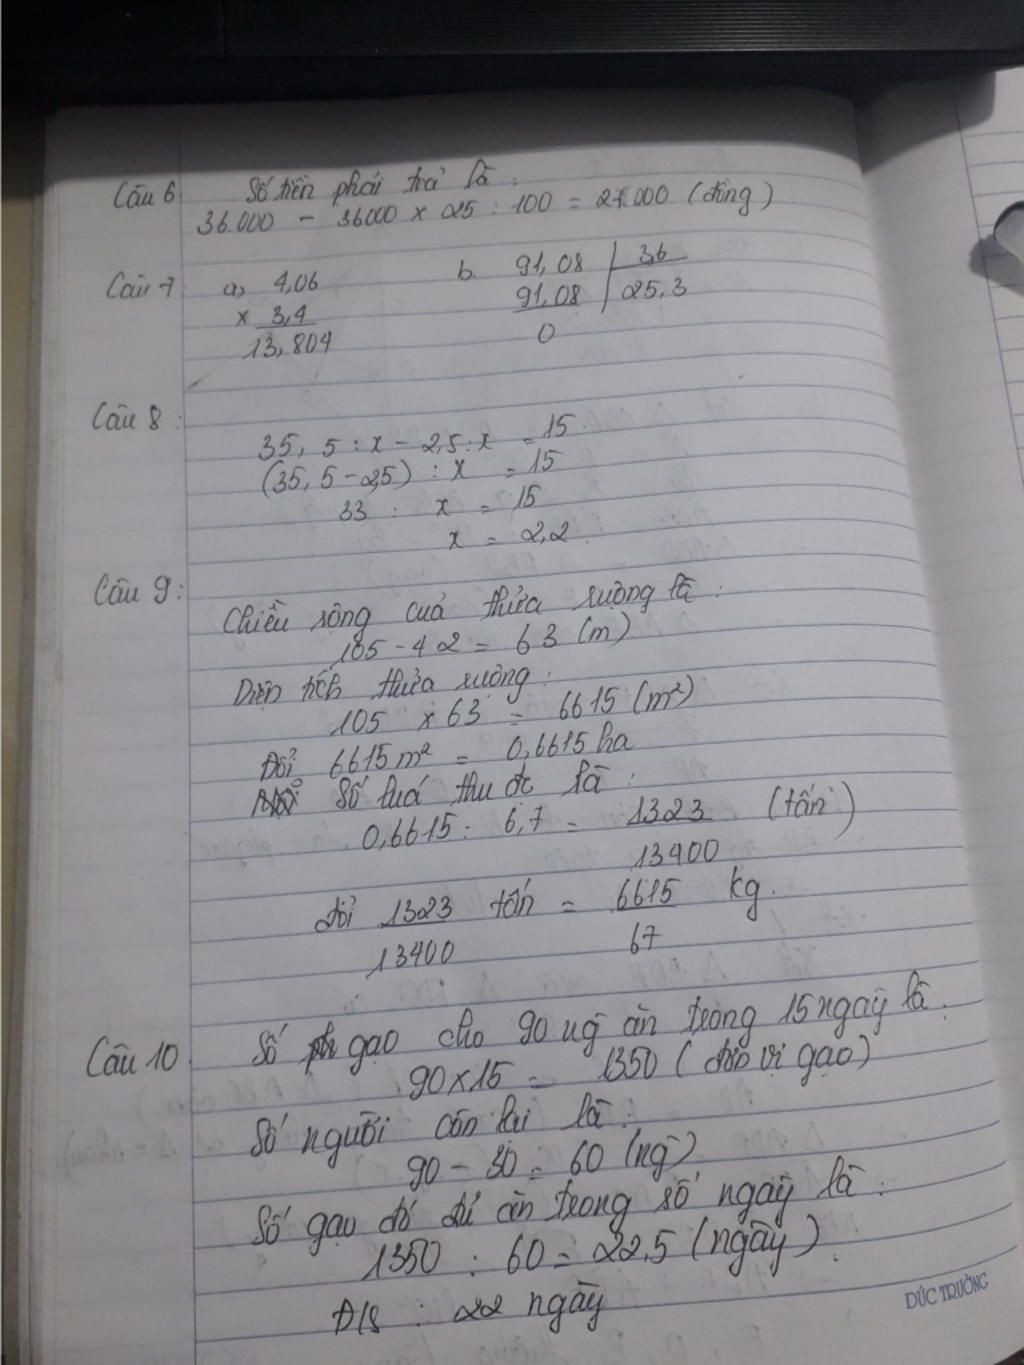 Câu 6 Số tiền phải trả là :
36.000 - 36000 x 25 : 100 = 27.000 (đồng)
Câu 7 a, 4,06 b. 91,08 | 3,6
x 3,4 91,08 | 25,3
13,804 0
Câu 8 :
35,5 : x - 2,5 : x = 15
(35,5 - 2,5) : x = 15
33 : x = 15
x = 2,2
Câu 9 :
Chiều rộng của thửa ruộng là :
105 - 42 = 63 (m)
Diện tích thửa ruộng :
105 x 63 = 6615 (m²)
Đổi 6615 m² = 0,6615 ha
Số luá thu đc là :
0,6615 : 6,7 = 1323/13400 (tấn)
đổi 1323/13400 tấn = 6615/67 kg.
Câu 10 Số gạo cho 90 ng ăn trong 15 ngày là :
90 x 15 = 1350 (đơn vị gạo)
Số người còn lại là :
90 - 30 = 60 (ng)
Số gạo đó đủ ăn trong số ngày là :
1350 : 60 = 22,5 (ngày)
Đ/S : 22 ngày
ĐỨC TRƯỜNG